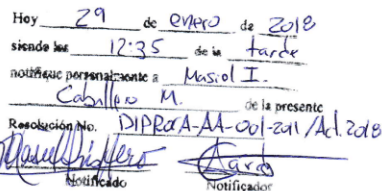 Hoy 29 de enero de 2018
siendo las 12:35 de la tarde
notifique personalmente a Masiol I.
Caballero M. de la presente
Resolución No. DIPROCA-AA-001-2011/Ad.2018
Notificado Notificador